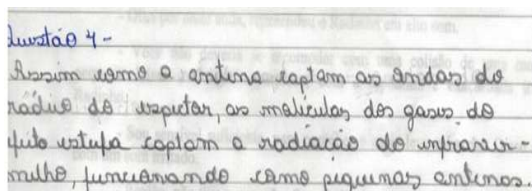 Questão 4-
Assim como a antena captam as ondas do
rádio do espetar, as moléculas dos gases do
efeito estufa captam a radiação do infraver-
melho, funcionando como pequenas antenas